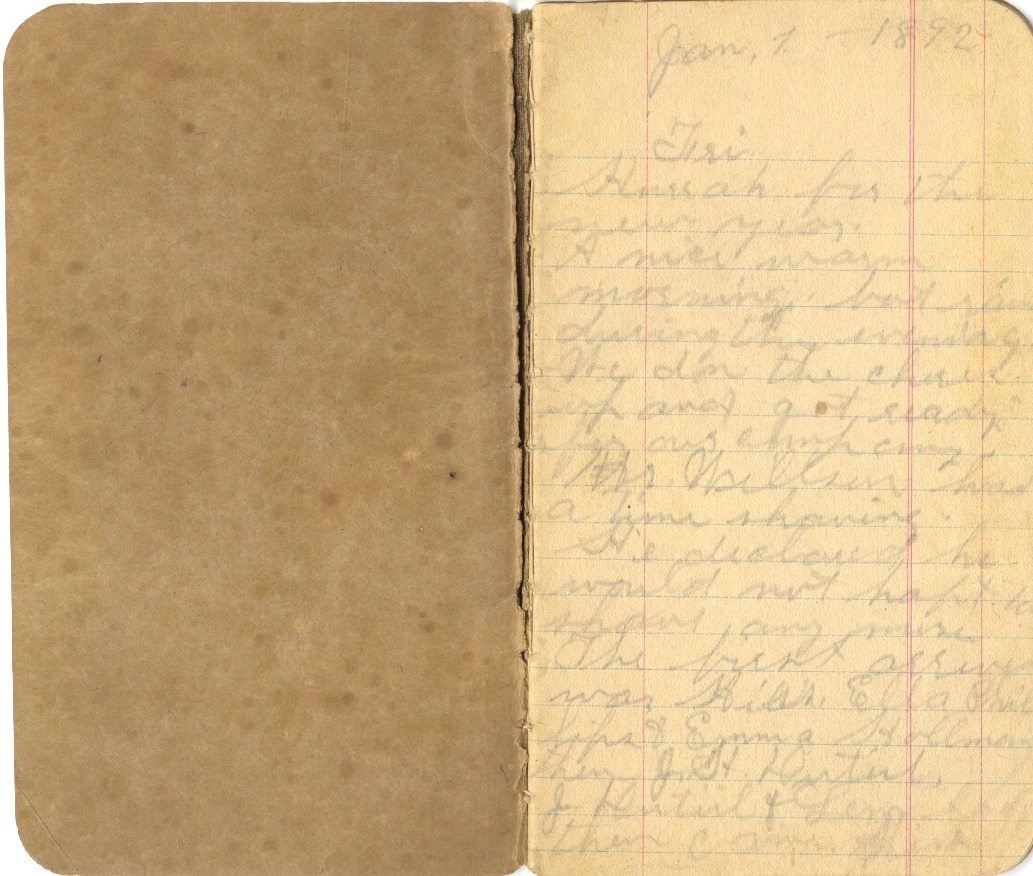 Jan, 1 - 1892
Fri.
Hurrah for the
new year.
A nice warm
morning, bad
during the evening
We don the chores
up and got ready
for our company.
Mr. Willson had
a fine shaving.
He declared he
would not haft to
shave any more
The first
was Miss. Ella Phil
lips & Emma Hollman
then J. H
J &
then came